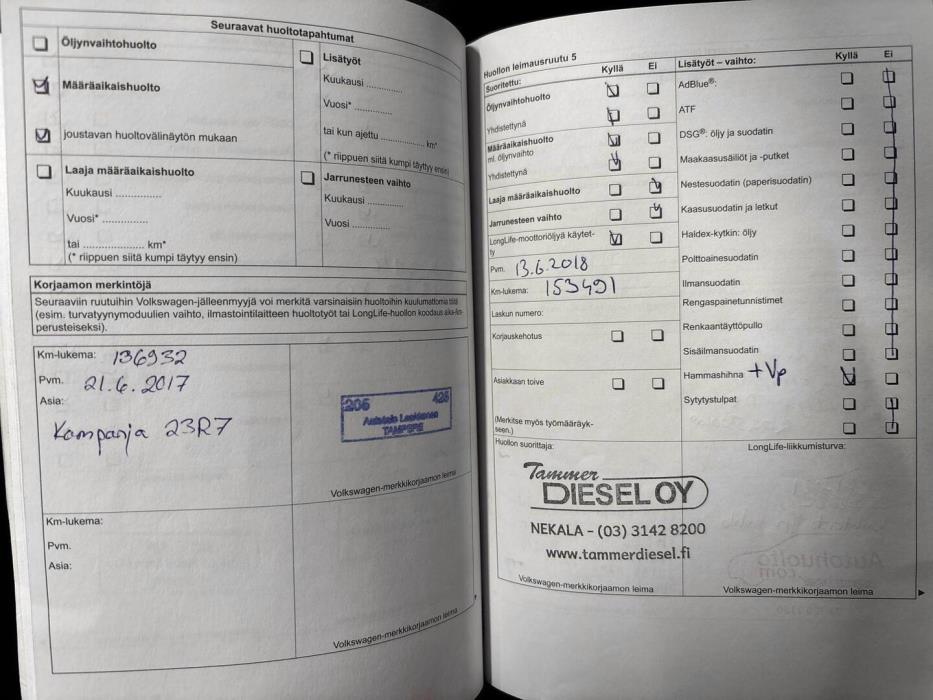 Seuraavat huoltotapahtumat
Öljynvaihtohuolto
Määräaikaishuolto
joustavan huoltovälinäytön mukaan
Laaja määräaikaishuolto
Kuukausi ..............
Vuosi* ..............
tai ................... km*
(* riippuen siitä kumpi täytyy ensin)
Lisätyöt
Kuukausi ............
Vuosi* ............
tai kun ajettu .............. km*
(* riippuen siitä kumpi täytyy ensin)
Jarrunesteen vaihto
Kuukausi ............
Vuosi ............
Korjaamon merkintöjä
Seuraaviin ruutuihin Volkswagen-jälleenmyyjä voi merkitä varsinaisiin huoltoihin kuulumattomia töitä
(esim. turvatyynymoduulien vaihto, ilmastointilaitteen huoltotyöt tai LongLife-huollon koodaus
perusteiseksi).
Km-lukema: 136932
Pvm. 21.6.2017
Asia:
Kampanja 23R7
205 425
TAMPERE
Volkswagen-merkkikorjaamon leima
Km-lukema:
Pvm.
Asia:
Volkswagen-merkkikorjaamon leima
Huollon leimausruutu 5
Suoritettu: Kyllä Ei
Öljynvaihtohuolto
Yhdistettynä
Määräaikaishuolto
ml. öljynvaihto
Yhdistettynä
Laaja määräaikaishuolto
Jarrunesteen vaihto
LongLife-moottoriöljyä käytet-
ty
Pvm. 13.6.2018
Km-lukema: 153491
Laskun numero:
Korjauskehotus
Asiakkaan toive
(Merkitse myös työmääräyk-
seen.)
Huollon suorittaja:
Tammer
DIESEL OY
NEKALA – (03) 3142 8200
www.tammerdiesel.fi
Volkswagen-merkkikorjaamon leima
Lisätyöt – vaihto: Kyllä Ei
AdBlue®:
ATF
DSG®: öljy ja suodatin
Maakaasusäiliöt ja -putket
Nestesuodatin (paperisuodatin)
Kaasusuodatin ja letkut
Haldex-kytkin: öljy
Polttoainesuodatin
Ilmansuodatin
Rengaspainetunnistimet
Renkaantäyttöpullo
Sisäilmansuodatin
Hammashihna +Vp
Sytytystulpat
LongLife-liikkumisturva:
Volkswagen-merkkikorjaamon leima